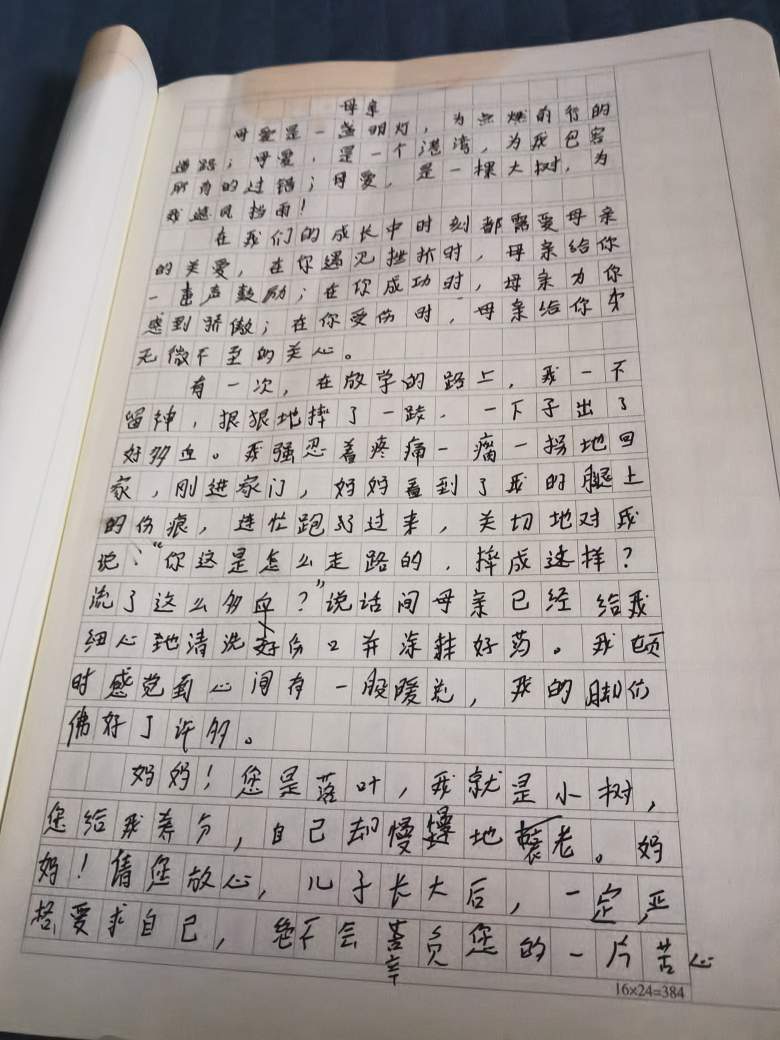 母亲
母爱是一盏明灯，为点燃前行的
道路；母爱，是一个港湾，为我包容
所有的过错；母爱，是一棵大树，为
我遮风挡雨！
在我们的成长中时刻都需要母亲
的关爱，在你遇见挫折时，母亲给你
一声声鼓励；在你成功时，母亲为你
感到骄傲；在你受伤时，母亲给你
无微不至的关心。
有一次，在放学的路上，我一不
留神，狠狠地摔了一跤．一下子出了
好多血。我强忍着疼痛一瘸一拐地回
家，刚进家门，妈妈看到了我的腿上
的伤痕，连忙跑过来，关切地对我
说：“你这是怎么走路的，摔成这样？
流了这么多血？”说话间母亲已经给我
细心地清洗好伤口并涂抹好药。我顿
时感觉到心间有一股暖意，我的脚仿
佛好了许多。
妈妈！您是落叶，我就是小树，
您给我养分，自己却慢慢地衰老。妈
妈！请您放心，儿子长大后，一定严
格要求自己，绝不会辜负您的一片苦心
16×24=384